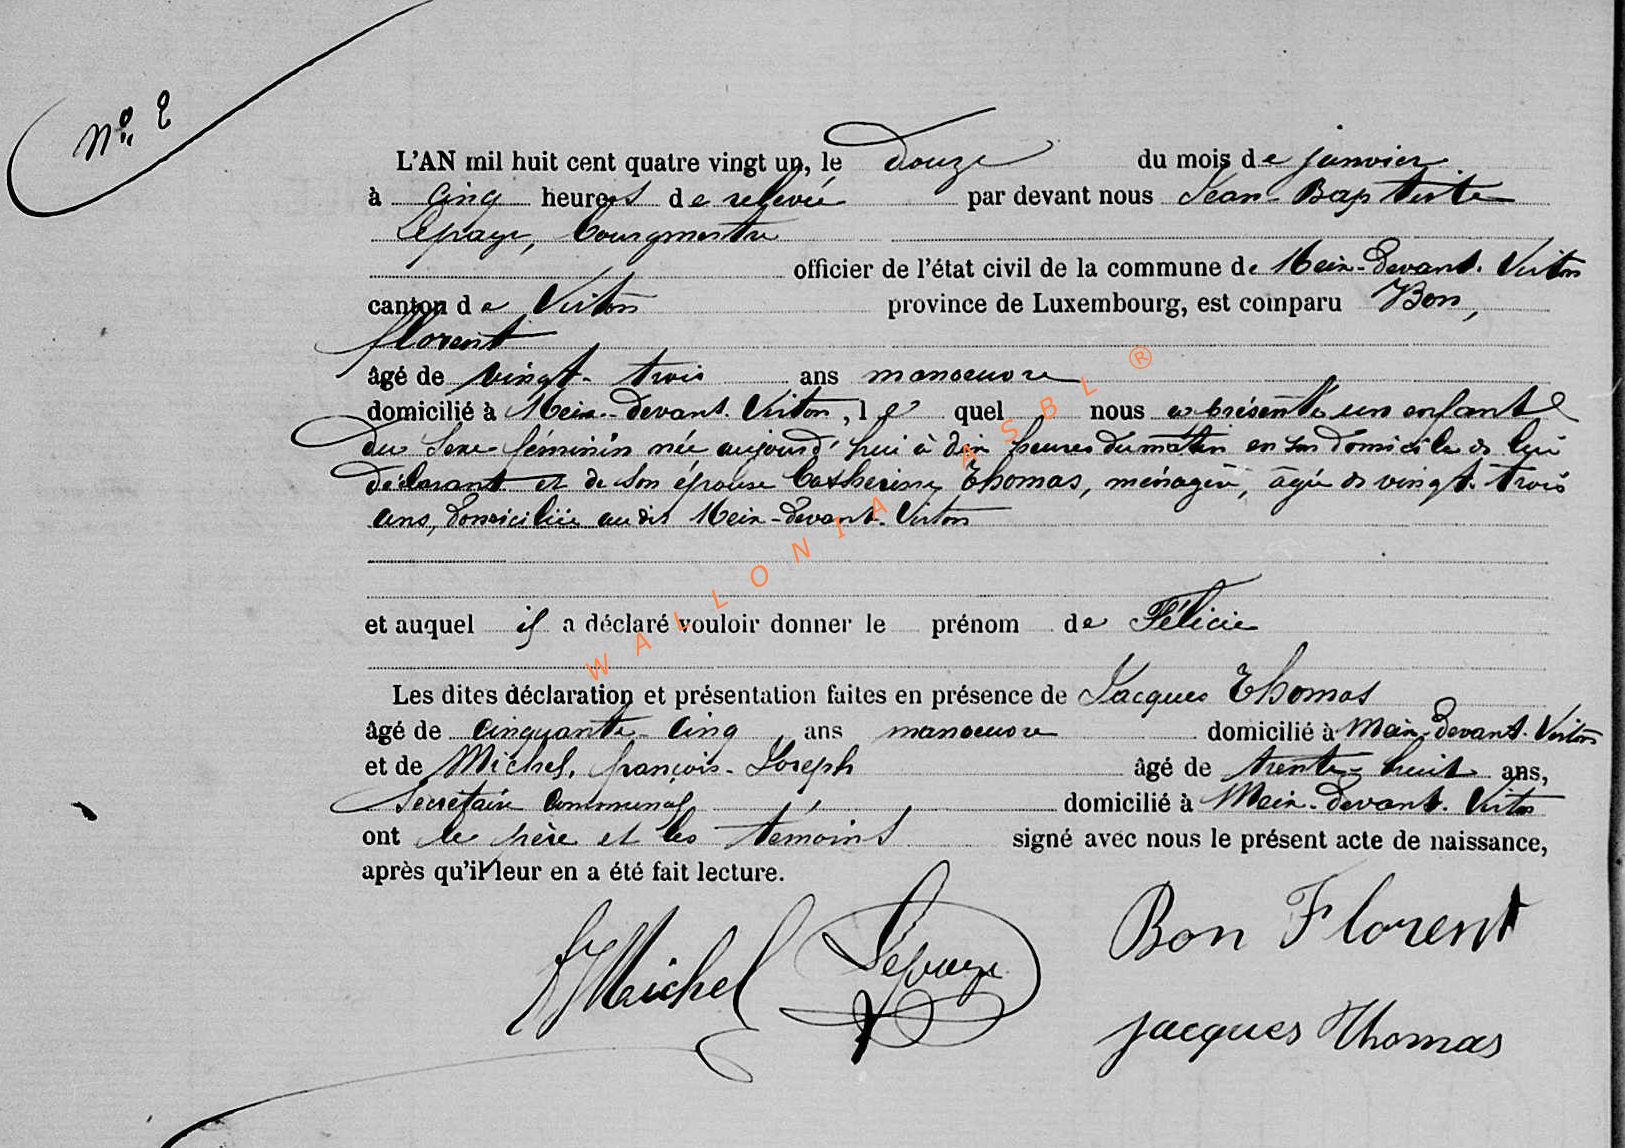 N° 2
L'AN mil huit cent quatre vingt un, le douze du mois de janvier
à cinq heures de relevée par devant nous Jean-Baptiste
Lepage, bourgmestre
officier de l'état civil de la commune de Meix-devant-Virton
canton de Virton province de Luxembourg, est comparu Bon,
florent
âgé de vingt-trois ans manoeuvre
domicilié à Meix-devant-Virton, lequel nous a présenté un enfant
du sexe féminin née aujourd'hui à dix heures du matin en son domicile de lui
déclarant et de son épouse Catherine Thomas, ménagère, âgée de vingt-trois
ans, domiciliée audit Meix-devant-Virton
et auquel il a déclaré vouloir donner le prénom de Félicie
Les dites déclaration et présentation faites en présence de Jacques Thomas
âgé de cinquante-cinq ans manoeuvre domicilié à Meix-devant-Virton
et de Michel, françois-Joseph âgé de trente-huit ans,
Secrétaire Communal, domicilié à Meix-devant-Virton
ont le père et les témoins signé avec nous le présent acte de naissance,
après qu'il leur en a été fait lecture.
FJMichel Lepage Bon Florent
jacques Thomas
WALLONIA ASBL ®